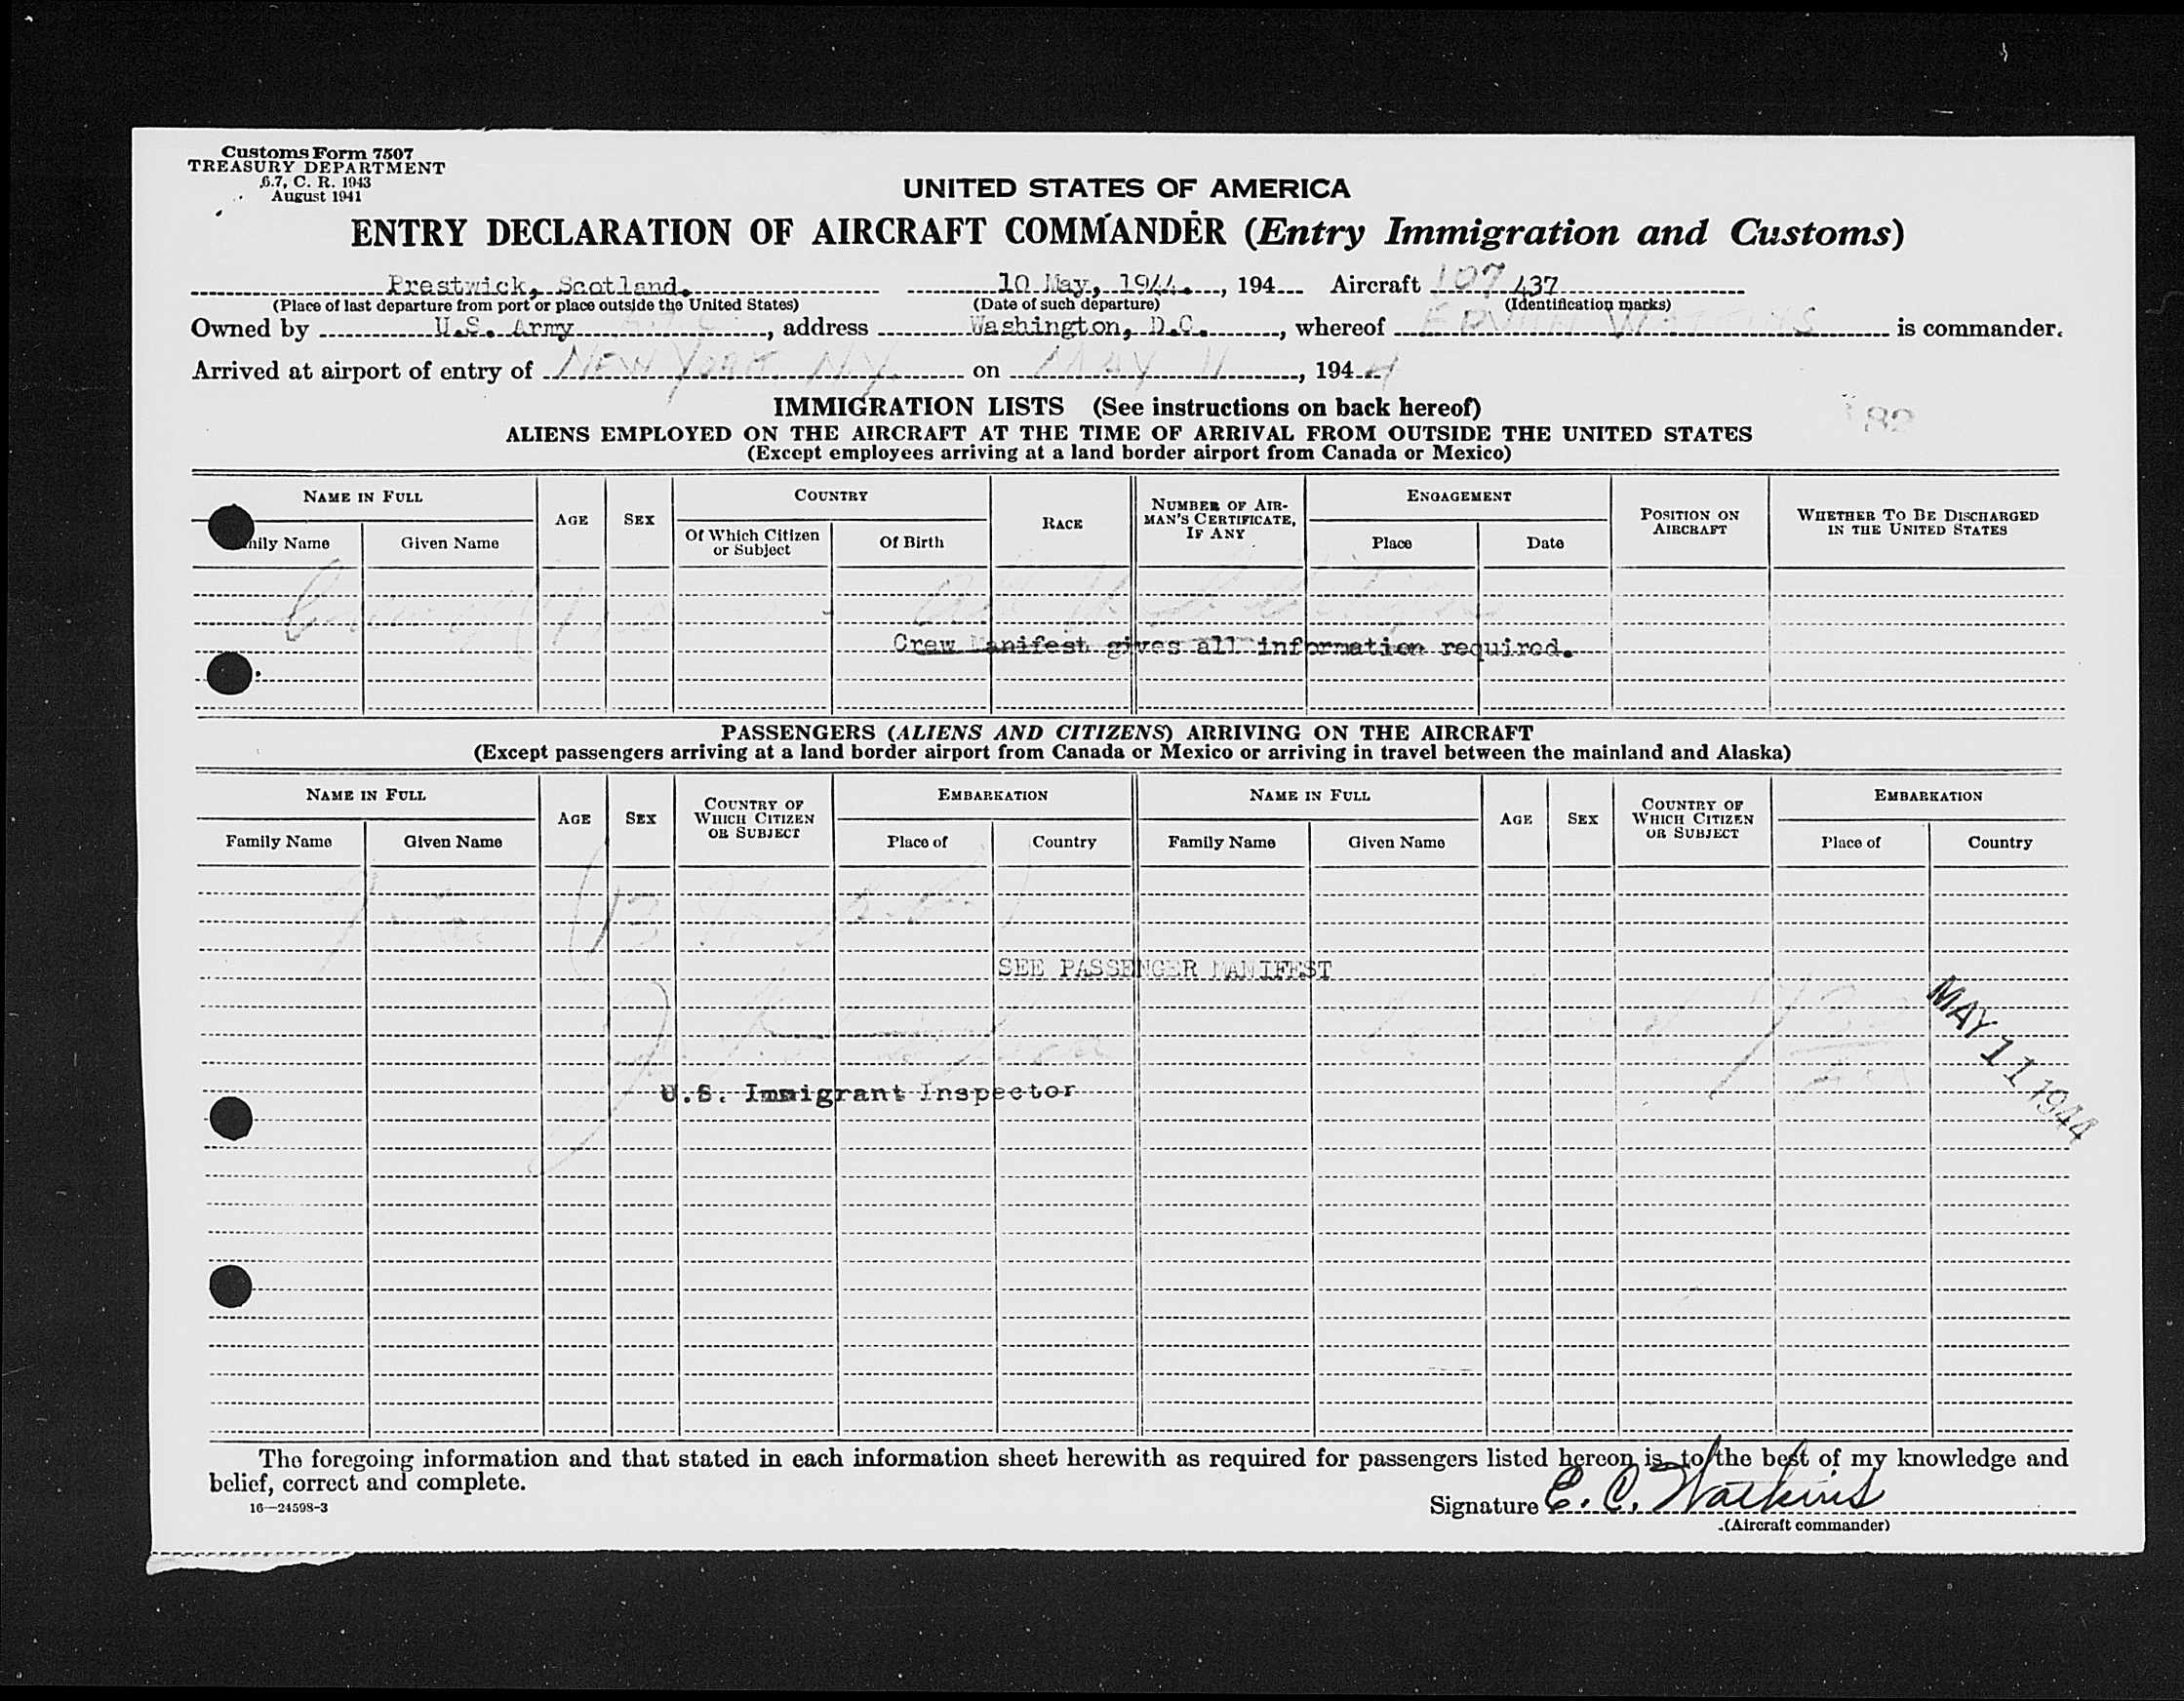 Customs Form 7507
TREASURY DEPARTMENT
6.7, C. R. 1943
August 1941
UNITED STATES OF AMERICA
ENTRY DECLARATION OF AIRCRAFT COMMANDER (Entry Immigration and Customs)
Prestwick, Scotland. 10 May, 1944. , 194 Aircraft 107 437
(Place of last departure from port or place outside the United States) (Date of such departure) (Identification marks)
Owned by U.S. Army , address Washington, D.C. , whereof WATKINS is commander.
Arrived at airport of entry of NEW YORK NY on MAY 11 , 1944
IMMIGRATION LISTS (See instructions on back hereof)
182
ALIENS EMPLOYED ON THE AIRCRAFT AT THE TIME OF ARRIVAL FROM OUTSIDE THE UNITED STATES
(Except employees arriving at a land border airport from Canada or Mexico)
NAME IN FULL AGE SEX COUNTRY RACE NUMBER OF AIRMAN'S CERTIFICATE, IF ANY ENGAGEMENT POSITION ON AIRCRAFT WHETHER TO BE DISCHARGED IN THE UNITED STATES
Family Name Given Name Of Which Citizen or Subject Of Birth Place Date
Crew Manifest gives all information required.
PASSENGERS (ALIENS AND CITIZENS) ARRIVING ON THE AIRCRAFT
(Except passengers arriving at a land border airport from Canada or Mexico or arriving in travel between the mainland and Alaska)
NAME IN FULL AGE SEX COUNTRY OF WHICH CITIZEN OR SUBJECT EMBARKATION NAME IN FULL AGE SEX COUNTRY OF WHICH CITIZEN OR SUBJECT EMBARKATION
Family Name Given Name Place of Country Family Name Given Name Place of Country
SEE PASSENGER MANIFEST
MAY 11 1944
U.S. Immigrant Inspector
The foregoing information and that stated in each information sheet herewith as required for passengers listed hereon is to the best of my knowledge and
belief, correct and complete.
16—24598-3
Signature E. C. Watkins
(Aircraft commander)